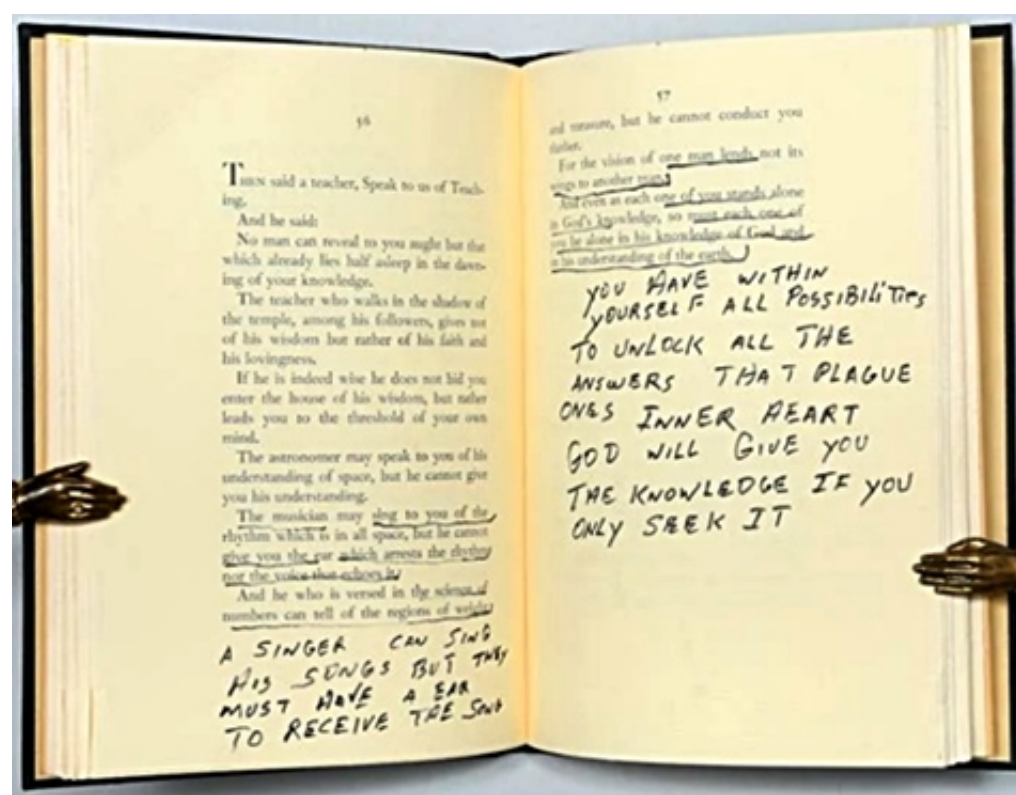 56
THEN said a teacher, Speak to us of Teach-
ing.
And he said:
No man can reveal to you aught but that
which already lies half asleep in the dawn-
ing of your knowledge.
The teacher who walks in the shadow of
the temple, among his followers, gives not
of his wisdom but rather of his faith and
his lovingness.
If he is indeed wise he does not bid you
enter the house of his wisdom, but rather
leads you to the threshold of your own
mind.
The astronomer may speak to you of his
understanding of space, but he cannot give
you his understanding.
The musician may sing to you of the
rhythm which is in all space, but he cannot
give you the ear which arrests the rhythm
nor the voice that echoes it.
And he who is versed in the science of
numbers can tell of the regions of weight
A SINGER CAN SING
HIS SONGS BUT THEY
MUST HAVE A EAR
TO RECEIVE THE SONG
57
and measure, but he cannot conduct you
thither.
For the vision of one man lends not its
wings to another man.
And even as each one of you stands alone
in God's knowledge, so must each one of
you be alone in his knowledge of God and
in his understanding of the earth.
YOU HAVE WITHIN
YOURSELF ALL POSSIBILITIES
TO UNLOCK ALL THE
ANSWERS THAT PLAGUE
ONES INNER HEART
GOD WILL GIVE YOU
THE KNOWLEDGE IF YOU
ONLY SEEK IT